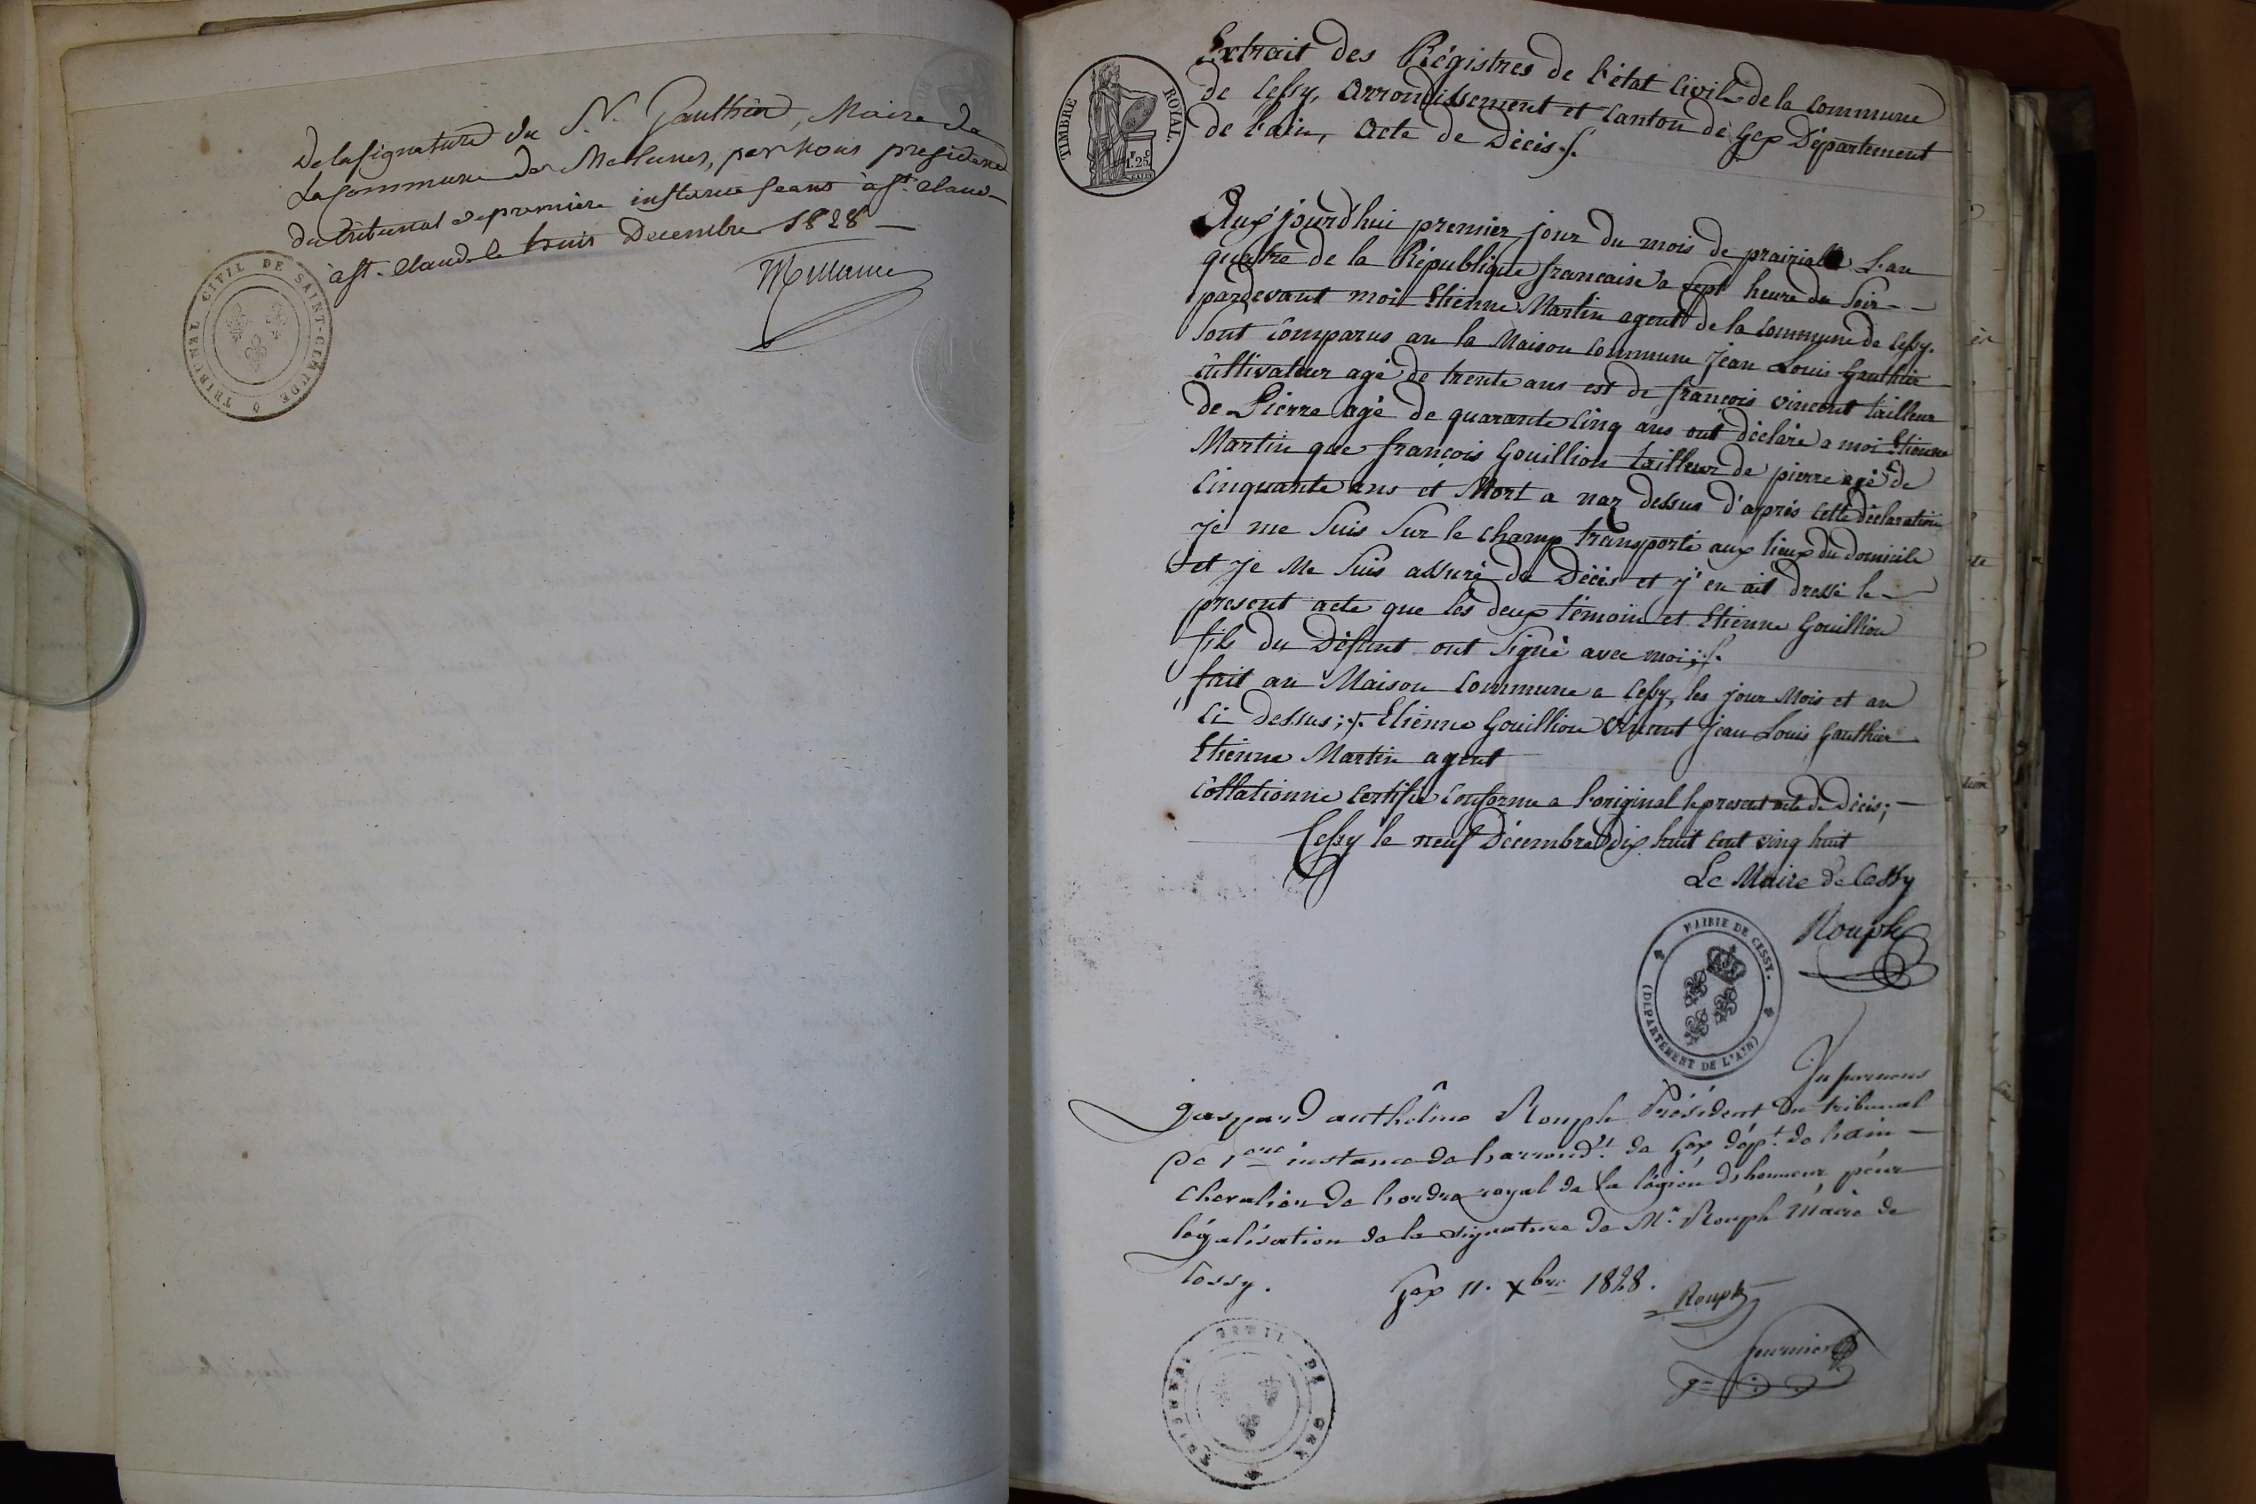 De la signature du S.r Gauthier, Maire de
La Commune des Molunes, par Nous president
du tribunal de premiere instance seant à st. Claude
à st. Claude le trois Decembre 1828 —
TRIBUNAL CIVIL DE SAINT-CLAUDE
TIMBRE ROYAL.
1.25
Extrait des Régistres de l'état Civil de la Commune
de Cessy, Arrondissement et Canton de Gex Département
de l'ain, Acte de Décès ./.
Aux jourd'hui premier jour du mois de prairial L'an
quatre de la République francaise a sept heure du Soir --
pardevant moi Etienne Martin agent de la Commune de Cessy.
Sont Comparus an la Maison Commune Jean Louis Gauthier
Cultivateur agé de trente ans est de françois vincent tailleur
de Pierre agé de quarante Cinq ans ont déclaré a moi Etienne
Martin que françois Gouillion tailleur de pierre agé de
Cinquante ans et Mort a naz dessus d'après Cette déclaration
je me Suis Sur le Champ transporté aux lieux du domicile
et je Me Suis assuré du Décès et j'en ait dressé le —
présent acte que les deux témoin et Etienne Gouillion
fils du Défunt ont Signé avec moi ;./.
fait an Maison Commune a Cessy, les jour Mois et an
Ci dessus ;./. Etienne Gouillion Vincent Jean Louis Gauthier
Etienne Martin agent
Collationné Certifié Conforme a l'original le présent acte de Décès ; —
Cessy le neuf Décembre Dix huit Cent vingt huit
Le Maire de Cessy
Rouph
MAIRIE DE CESSY.
(DEPARTEMENT DE L'AIN)
Vu par nous
gaspard anthelme Rouph Président du tribunal
de 1ere instance de l'arrondt. de Gex dépt. de l'ain —
chevalier de l'ordre royal de la légion d'honneur, pour
légalisation de la signature de Mr. Rouph Maire de
Cessy.
Gex 11. Xbre 1828.
Rouph
fournier
TRIBUNAL CIVIL DE GEX